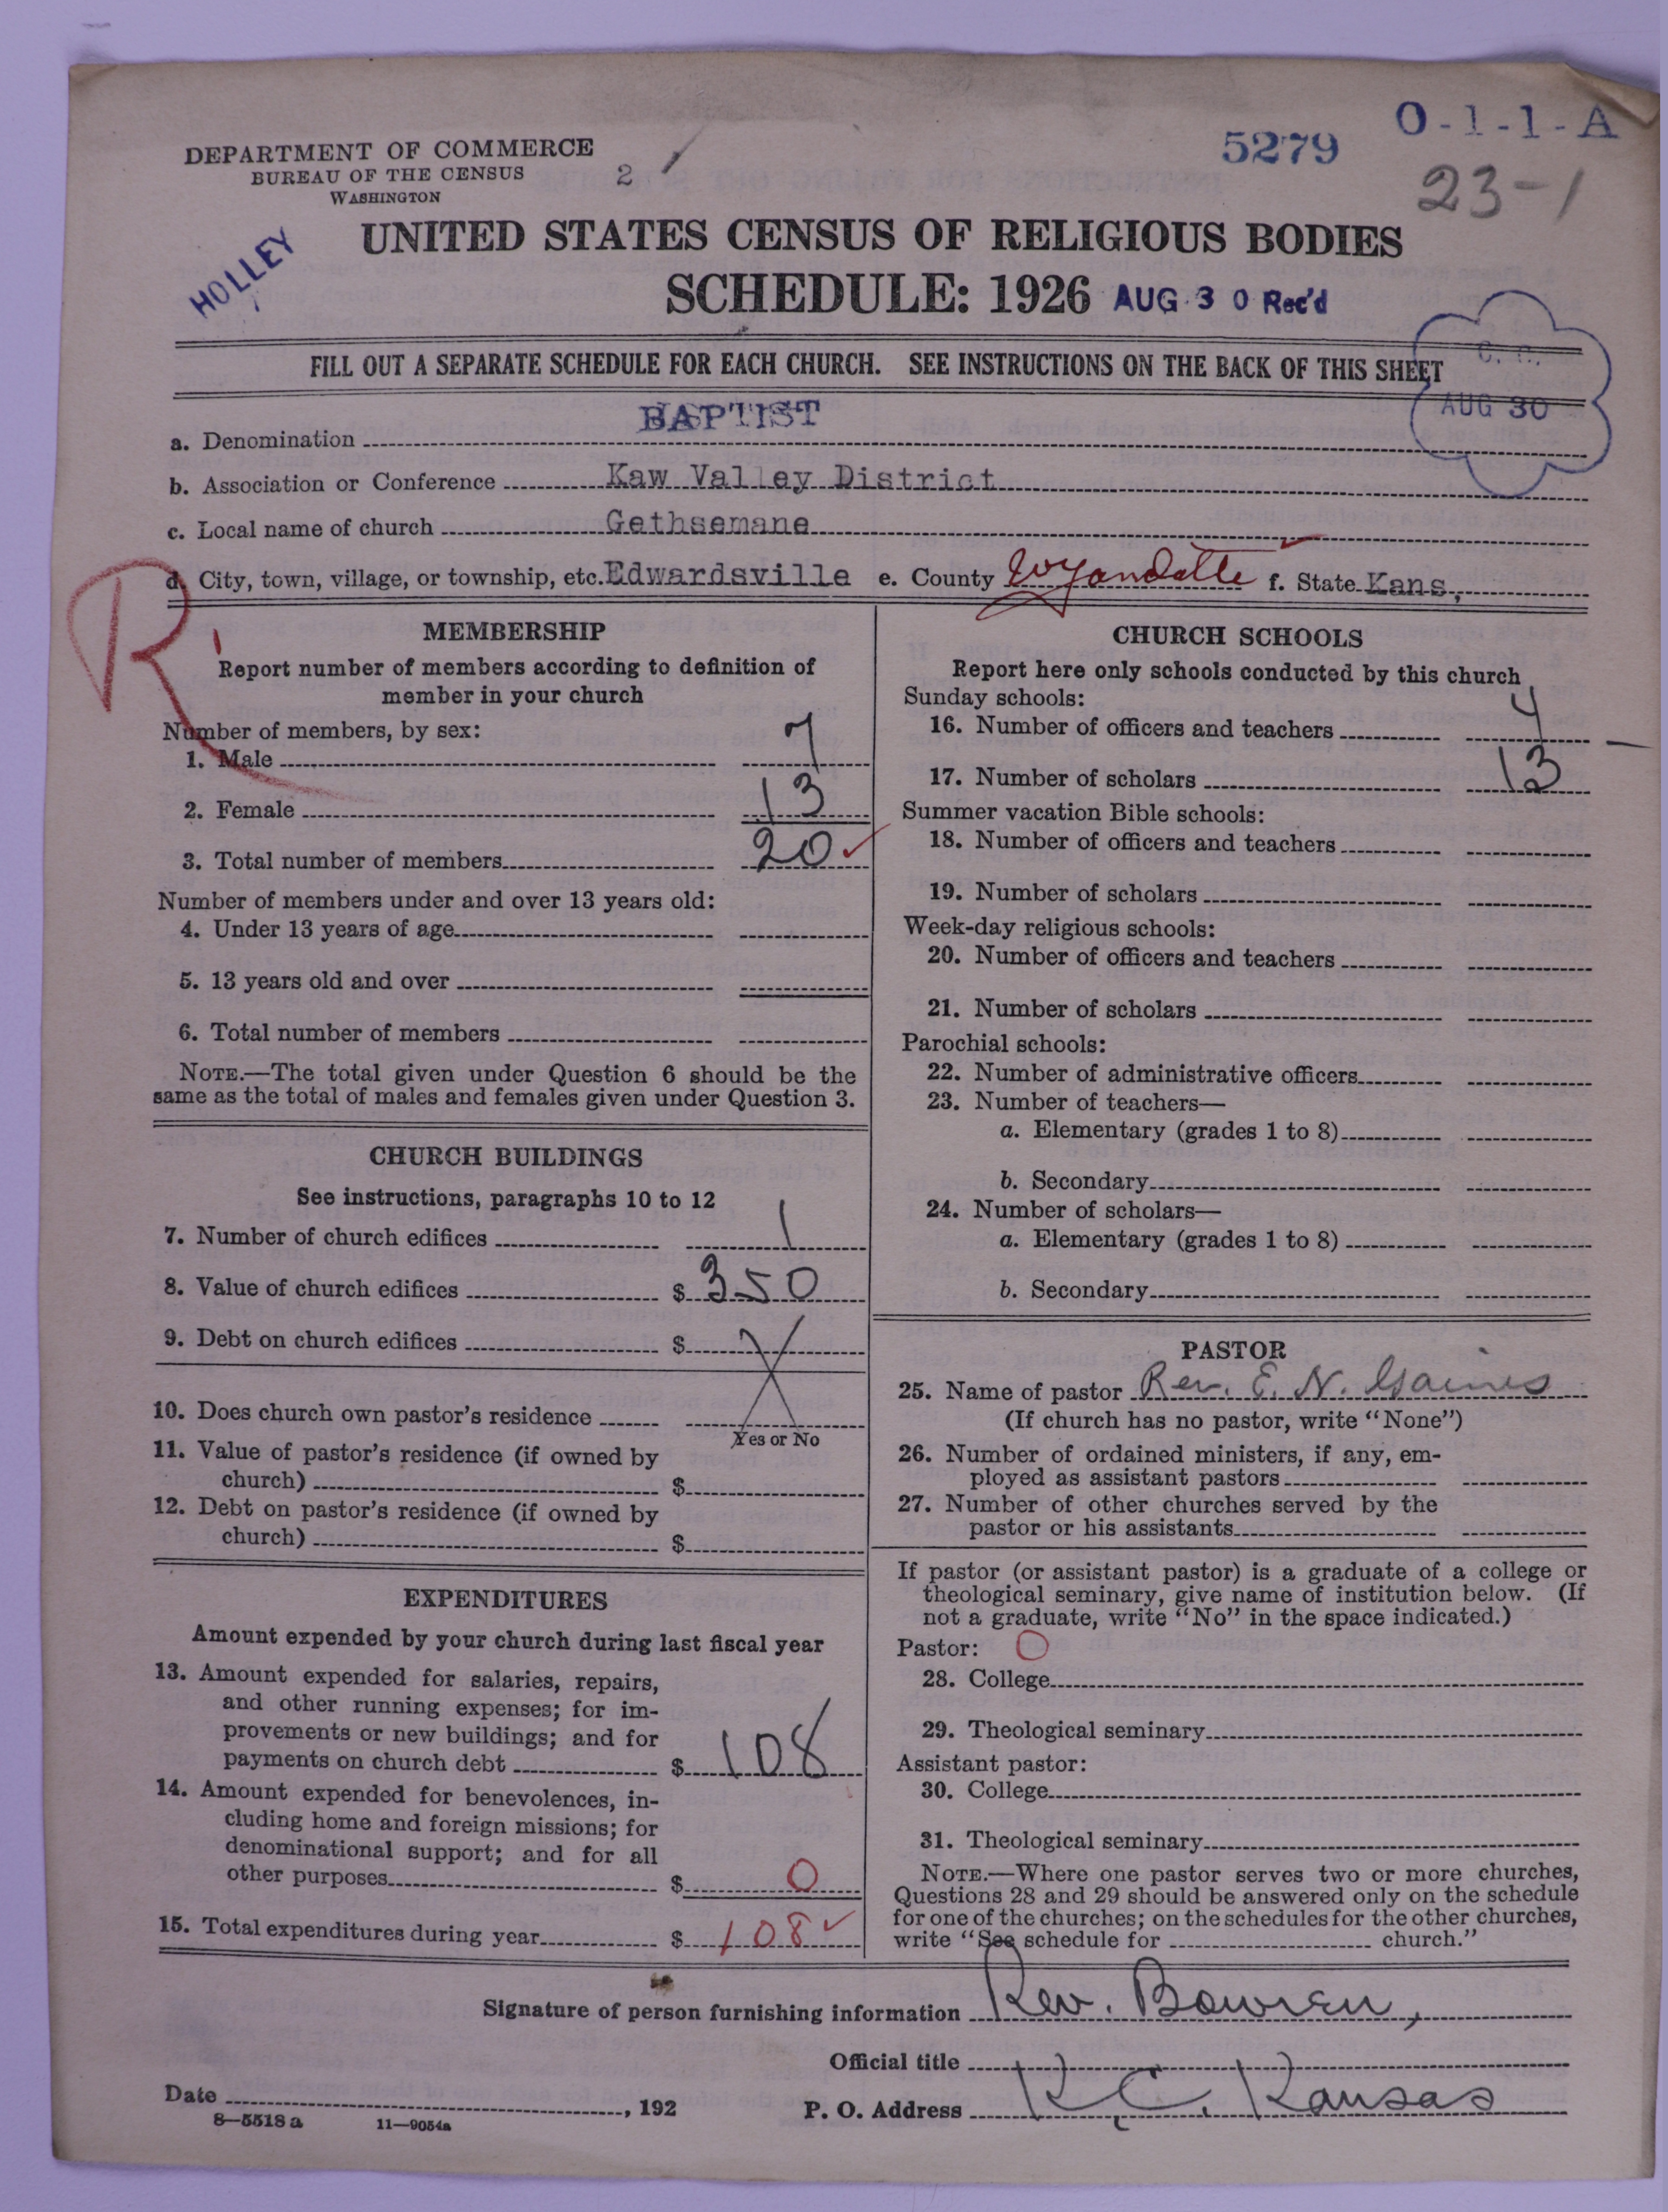 O-1-1-A
5279
23-1
DEPARTMENT OF COMMERCE
BUREAU OF THE CENSUS
WASHINGTON
2
HOLLEY
UNITED STATES CENSUS OF RELIGIOUS BODIES
SCHEDULE: 1926 AUG 30 Rec'd
FILL OUT A SEPARATE SCHEDULE FOR EACH CHURCH. SEE INSTRUCTIONS ON THE BACK OF THIS SHEET
AUG 30
a. Denomination BAPTIST
b. Association or Conference Kaw Valley District
c. Local name of church Gethsemane
d. City, town, village, or township, etc. Edwardsville e. County Wyandotte f. State Kans,
R
MEMBERSHIP
Report number of members according to definition of
member in your church
Number of members, by sex:
1. Male 7
2. Female 13
3. Total number of members 20 ✓
Number of members under and over 13 years old:
4. Under 13 years of age
5. 13 years old and over
6. Total number of members
NOTE.—The total given under Question 6 should be the
same as the total of males and females given under Question 3.
CHURCH BUILDINGS
See instructions, paragraphs 10 to 12
7. Number of church edifices 1
8. Value of church edifices $ 350
9. Debt on church edifices $
10. Does church own pastor's residence
Yes or No
11. Value of pastor's residence (if owned by
church) $
12. Debt on pastor's residence (if owned by
church) $
EXPENDITURES
Amount expended by your church during last fiscal year
13. Amount expended for salaries, repairs,
and other running expenses; for im-
provements or new buildings; and for
payments on church debt $ 108
14. Amount expended for benevolences, in-
cluding home and foreign missions; for
denominational support; and for all
other purposes $ 0
15. Total expenditures during year $ 108 ✓
CHURCH SCHOOLS
Report here only schools conducted by this church
Sunday schools:
16. Number of officers and teachers 4
17. Number of scholars 13
Summer vacation Bible schools:
18. Number of officers and teachers
19. Number of scholars
Week-day religious schools:
20. Number of officers and teachers
21. Number of scholars
Parochial schools:
22. Number of administrative officers
23. Number of teachers—
a. Elementary (grades 1 to 8)
b. Secondary
24. Number of scholars—
a. Elementary (grades 1 to 8)
b. Secondary
PASTOR
25. Name of pastor Rev. E. N. Gaines
(If church has no pastor, write "None")
26. Number of ordained ministers, if any, em-
ployed as assistant pastors
27. Number of other churches served by the
pastor or his assistants
If pastor (or assistant pastor) is a graduate of a college or
theological seminary, give name of institution below. (If
not a graduate, write "No" in the space indicated.)
Pastor: O
28. College
29. Theological seminary
Assistant pastor:
30. College
31. Theological seminary
NOTE.—Where one pastor serves two or more churches,
Questions 28 and 29 should be answered only on the schedule
for one of the churches; on the schedules for the other churches,
write "See schedule for church."
Signature of person furnishing information Rev. Bowren,
Official title
Date , 192 P. O. Address K.C. Kansas
8-5518 a 11-9054a